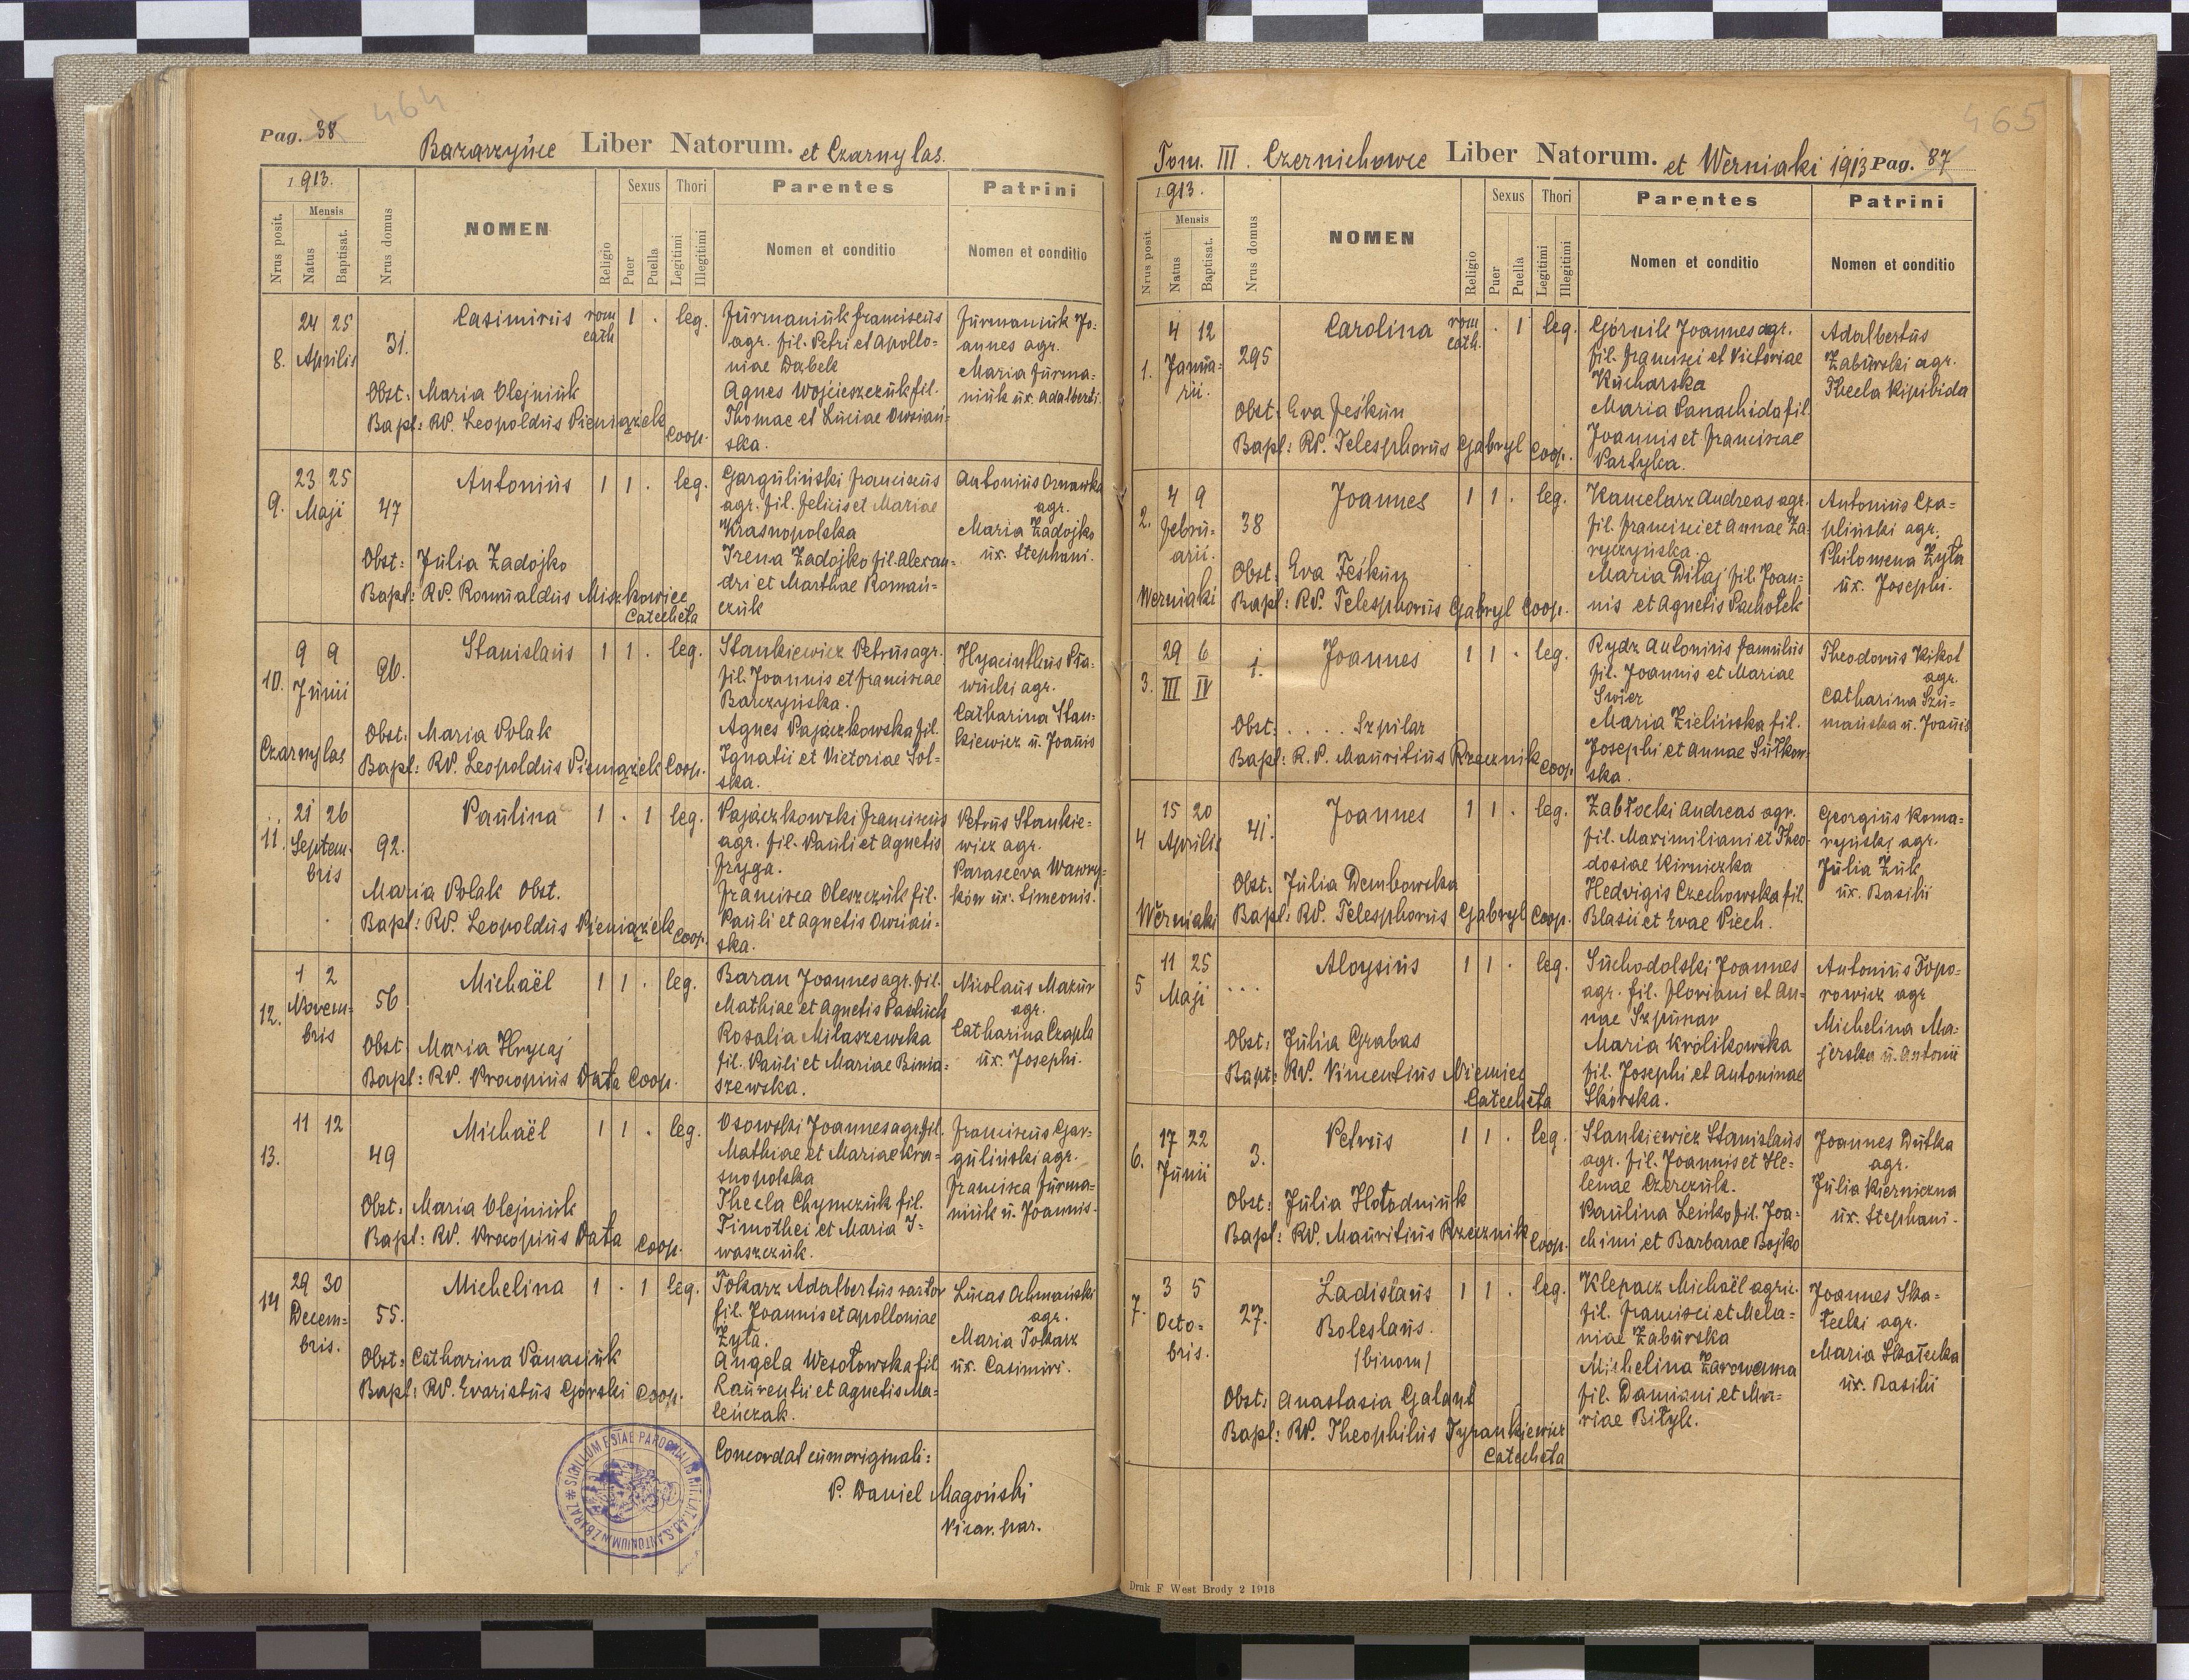 464
Pag. 38
Bazarzyńce Liber Natorum. et Czarny las.
1913.
Nrus posit.
Mensis
Natus
Baptisat.
Nrus domus
NOMEN
Religio
Sexus
Puer
Puella
Thori
Legitimi
Illegitimi
Parentes
Nomen et conditio
Patrini
Nomen et conditio
8.
24 25
Aprilis
31.
Casimirus
rom
cath
1 . leg.
Jurmaniuk Franciscus
agr. fil. Petri et Apollo=
niae Dąbek
Agnes Wojcieszczuk fil.
Thomae et Luciae Owsian=
ska.
Jurmaniuk Jo=
annes agr.
Maria Jurma=
niuk ux. Adalberti
Obst: Maria Olejniuk
Bapt: RP. Leopoldus Pieniązek
Coop.
9.
23 25
Maji
47
Antonius
1 1 . leg.
Garguliński Franciscus
agr. fil. Felicis et Mariae
Krasnopolska
Irena Zadojko fil. Alexan=
dri et Marthae Romań=
czuk
Antonius Ornawka
agr.
Maria Zadojko
ux. Stephani.
Obst: Julia Zadojko
Bapt: RP. Romualdus Miszkowicz
Catecheta
10.
9 9
Junii
96.
Czarny las
Stanislaus
1 1 . leg.
Stankiewicz Petrus agr.
fil. Joannis et Franciscae
Barczyńska.
Agnes Pajączkowska fil.
Ignatii et Victoriae Sol=
ska.
Hyacinthus Pia=
wucki agr.
Catharina Stan=
kiewicz u. Joanis
Obst: Maria Polak
Bapt: RP. Leopoldus Pieniązek Coop.
11.
21 26
Septem=
bris
92.
Paulina
1 . 1 leg.
Pajączkowski Franciscus
agr. fil. Pauli et Agnetis
Fryga.
Francisca Oleszczuk fil.
Pauli et Agnetis Owsiań=
ska.
Petrus Stankie=
wicz agr.
Parasceva Wawry=
ków ux. Simeonis.
Maria Polak Obst.
Bapt: RP. Leopoldus Pieniązek
Coop.
12.
1 2
Novem=
bris
56
Michaël
1 1 . leg.
Baran Joannes agr. fil.
Mathiae et Agnetis Pastuch
Rosalia Milaszewska
fil. Pauli et Mariae Binia=
szewska.
Nicolaus Mazur
agr.
Catharina Czapla
ux. Josephi.
Obst: Maria Hrycaj
Bapt: RP. Procopius Data Coop.
13.
11 12
49
Michaël
1 1 . leg.
Osowski Joannes agr. fil.
Mathiae et Mariae Kra=
snopolska
Thecla Chymczuk fil.
Timothei et Maria I=
waszczuk.
Franciscus Gar=
guliński agr.
Francisca Jurma=
niuk u. Joannis.
Obst: Maria Olejniuk
Bapt: RP. Procopius Data Coop.
14
29 30
Decem=
bris.
55.
Michelina
1 . 1 leg.
Tokarz Adalbertus sartor
fil. Joannis et Apolloniae
Żyła.
Angela Wesołowska fil.
Laurentii et Agnetis Ma=
leńczak.
Lucas Ochmański
agr.
Maria Tokarz
ux. Casimiri.
Obst: Catharina Panasiuk
Bapt: RP. Evaristus Górski Coop.
Concordat cum originali:
P. Daniel Magoński
Vicar. par.
465
Tom. III. Czernichowce Liber Natorum. et Werniaki 1913 Pag. 87
1913.
Nrus posit.
Mensis
Natus
Baptisat.
Nrus domus
NOMEN
Religio
Sexus
Puer
Puella
Thori
Legitimi
Illegitimi
Parentes
Nomen et conditio
Patrini
Nomen et conditio
1.
4 12
Janua=
rii.
295
Carolina
rom
cath.
. 1 leg.
Górnik Joannes agr.
fil. Francisci et Victoriae
Kucharska
Maria Panachida fil.
Joannis et Franciscae
Partyka.
Adalbertus
Zaburski agr.
Thecla Kipibida
Obst: Eva Feśkun
Bapt: RP. Telesphorus Gabryl Coop.
2.
4 9
Febru=
arii.
Werniaki
38
Joannes
1 1 . leg.
Kanclarz Andreas agr.
fil. Francisci et Annae Za=
ryczyńska.
Maria Diłaj fil. Joan=
nis et Agnetis Pachołek
Antonius Cza=
pliński agr.
Philomena Żyła
ux. Josephi.
Obst: Eva Feśkun
Bapt: RP. Telesphorus Gabryl Coop.
3.
29 6
III IV
1.
Joannes
1 1 . leg.
Rydz Antonius famulus
fil. Joannis et Mariae
Świer
Maria Zielińska fil.
Josephi et Annae Sutkow=
ska.
Theodorus Kikot
agr.
Catharina Szu=
mańska u. Joanis
Obst: . . . . Szpilar
Bapt: R.P. Mauritius Rzecznik
Coop.
4
15 20
Aprilis
Werniaki
41.
Joannes
1 1 . leg.
Zabłocki Andreas agr.
fil. Maximiliani et Theo=
dosiae Kirniczka
Hedvigis Czechowska fil.
Blasii et Evae Piech.
Georgius Roma=
ryński agr.
Julia Żuk
ux. Basilii
Obst: Julia Dembowska
Bapt: RP. Telesphorus Gabryl Coop.
5
11 25
Maji
. . .
Aloysius
1 1 . leg.
Suchodolski Joannes
agr. fil. Floriani et An=
nae Szpunar
Maria Królikowska
fil. Josephi et Antoninae
Skórska.
Antonius Topo=
rowicz agr
Michelina Ma=
jerska u. Antonii
Obst: Julia Grabas
Bapt: RP. Vincentius Niemiec
Catecheta
6.
17 22
Junii
3.
Petrus
1 1 . leg.
Stankiewicz Stanislaus
agr. fil. Joannis et He=
lenae Czerczuk.
Paulina Leńko fil. Joa=
chimi et Barbarae Bojko
Joannes Dutka
agr.
Julia Kierniczna
ux. Stephani.
Obst: Julia Hołodniuk
Bapt: RP. Mauritius Rzecznik
Coop.
7.
3 5
Octo=
bris.
27.
Ladislaus
Boleslaus.
/binom/
1 1 . leg.
Klepacz Michaël agric.
fil. Francisci et Mela=
niae Zaburska
Michelina Zarowenna
fil. Damiani et Ma=
riae Biłyk.
Joannes Ska=
łecki agr.
Maria Skałecka
ux. Basilii
Obst: Anastasia Galant
Bapt: RP. Theophilus Tyrankiewicz
Catecheta
Druk F West Brody 2 1913